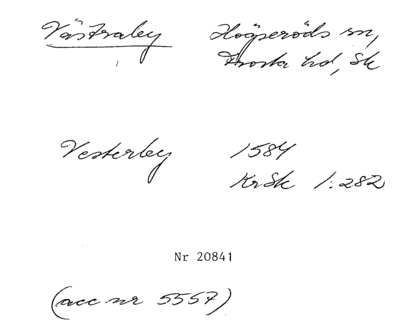 Västraby Högseröds sn,
Frosta hd, Sk
Vesterbey 1584
KrSk 1:282
Nr 20841
(acc nr 5557)